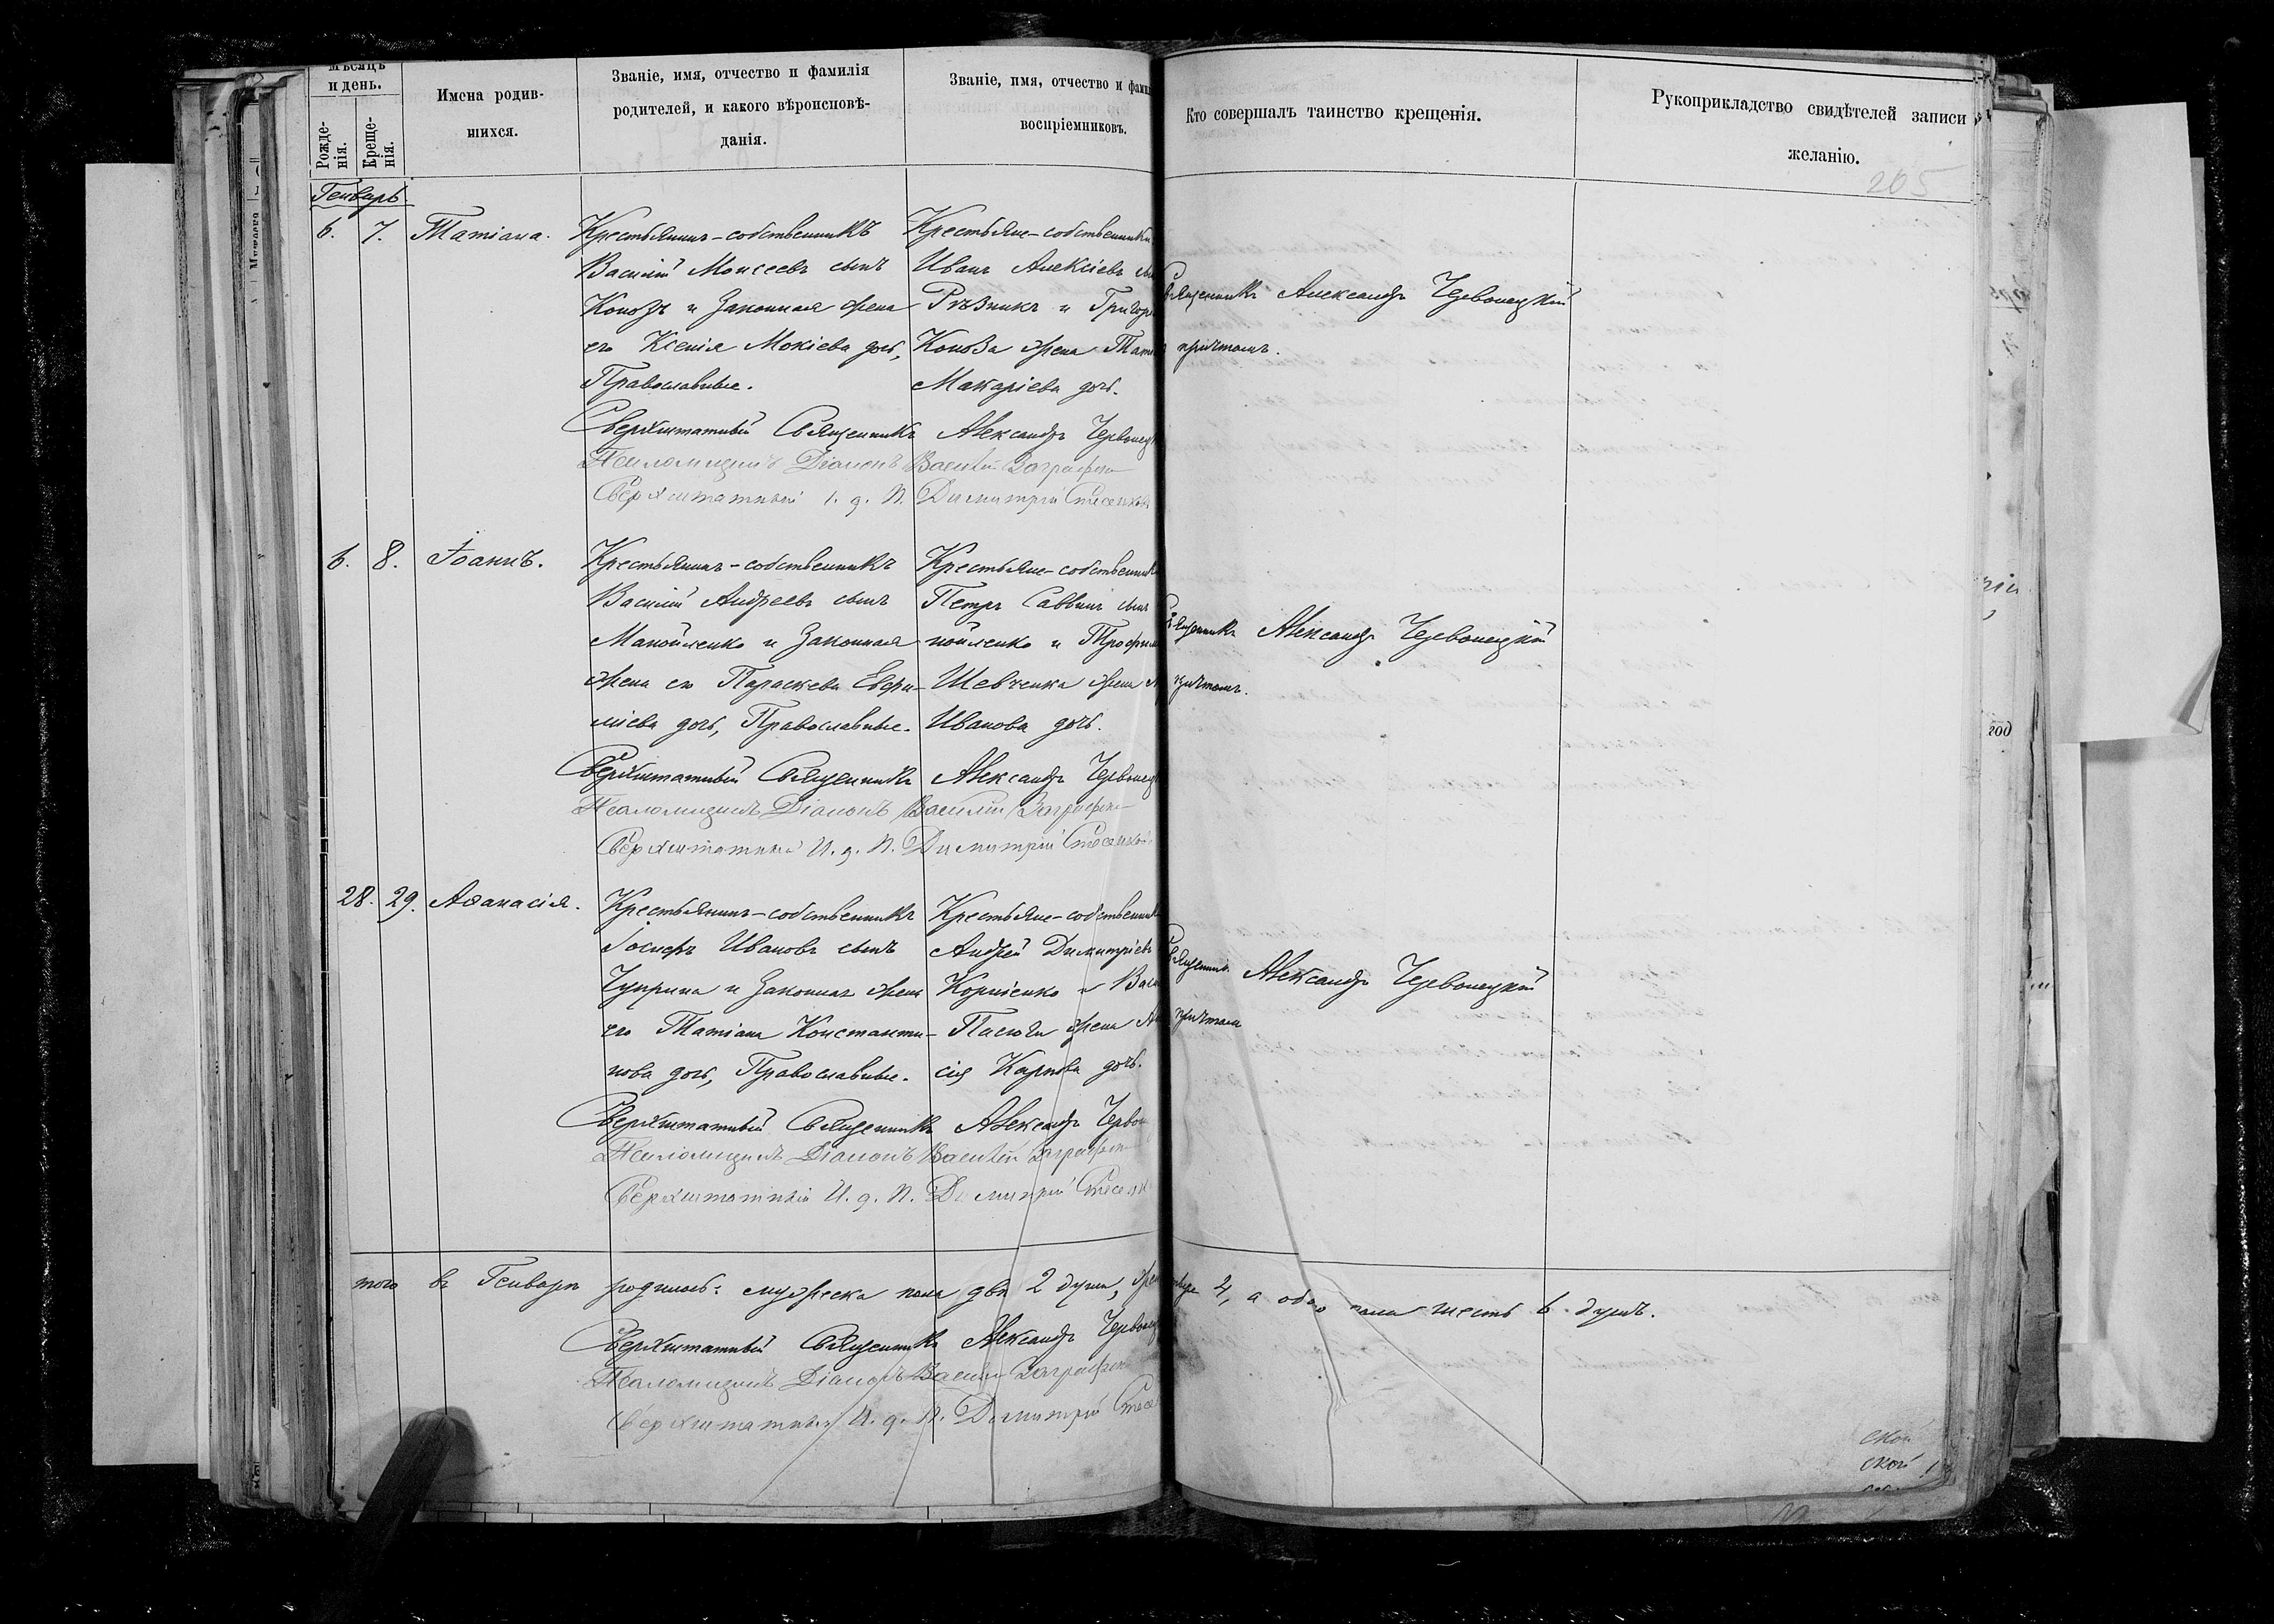 Мѣсяцъ
и день.
Рожде-
нія.
Креще-
нія.
Имена родив-
шихся.
Званіе, имя, отчество и фамилія
родителей, и какого вѣроисповѣ-
данія.
Званіе, имя, отчество и фами
воспріемниковъ.
Кто совершалъ таинство крещенія.
Рукоприкладство свидѣтелей записи
желанію.
205
Генварь
6. 7. Татіана.
Крестьянинъ-собственникъ
Василій Моисеевъ сынъ
и законная жена
его Ксенія Мокіева дочь,
Православные.
Крестьяне-собственники
Иванъ Алексіевъ
Рѣзникъ и Григор
жена Тат
Макаріева дочь.
Священникъ Александръ Червонецкій
причтомъ.
Сверхштатный Священникъ Александръ Червонец
Псаломщикъ Діаконъ Василій
Сверхштатный И. д. П. Димитрій
6. 8. Іоаннъ.
Крестьянинъ-собственникъ
Василій Андреевъ сынъ
Манойленко и законная
жена его Параскева Евфи-
міева дочь, Православные.
Крестьяне-собственник
Петръ Саввинъ сынъ
нойленко и Трофим
Шевченка жена
Иванова дочь.
Священникъ Александръ Червонецкій
причтомъ.
Сверхштатный Священникъ Александръ Червонец
Псаломщикъ Діаконъ Василій
Сверхштатный И. д. П. Димитрій
28. 29. Аѳанасія.
Крестьянинъ-собственникъ
Іосифъ Ивановъ сынъ
Чуприна и законная жена
его Татіана Константи-
нова дочь, Православные.
Крестьяне-собственник
Андрей Димитріевъ
Корніенко и Васи
жена
сія Карпова дочь.
Священникъ Александръ Червонецкій
причтомъ
Сверхштатный Священникъ Александръ Червон
Псаломщикъ Діаконъ Василій
Сверхштатный И. д. П. Димитрій
того въ Генварѣ родилось: мужеска пола двѣ 2 души, 4, а обоего пола шесть 6 душъ.
Сверхштатный Священникъ Александръ Червонец
Псаломщикъ Діаконъ Василій
Сверхштатный И. д. П. Димитрій
ской
ской
год